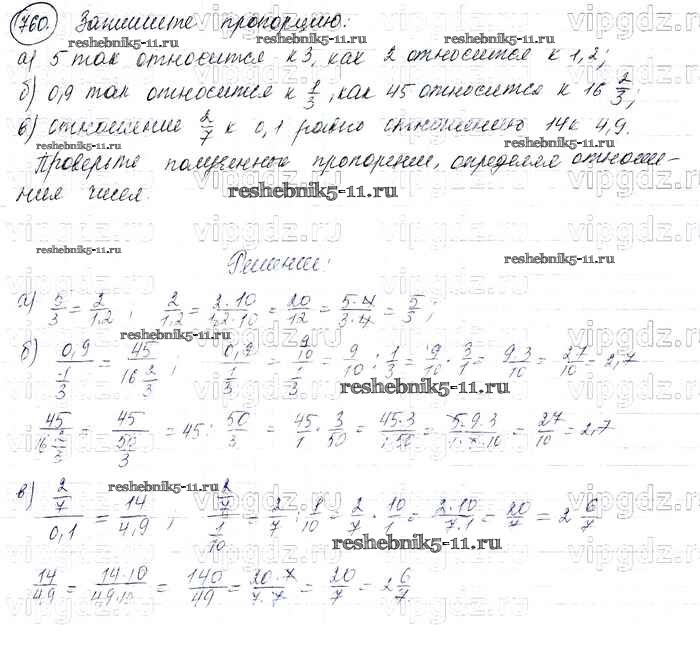 760. Запишите пропорцию:
а) 5 так относится к 3, как 2 относится к 1,2;
б) 0,9 так относится к 1/3, как 45 относится к 16 2/3;
в) отношение 2/7 к 0,1 равно отношению 14 к 4,9.
Проверьте полученные пропорции, определяя отноше-
ния чисел.
Решение:
а) 5/3 = 2/1,2 ; 2/1,2 = 2·10/1,2·10 = 20/12 = 5·4/3·4 = 5/3 ;
б) 0,9/(1/3) = 45/(16 2/3) ; 0,9/(1/3) = (9/10)/(1/3) = 9/10 : 1/3 = 9/10 · 3/1 = 9·3/10 = 27/10 = 2,7
45/(16 2/3) = 45/(50/3) = 45 : 50/3 = 45/1 · 3/50 = 45·3/1·50 = 5·9·3/1·5·10 = 27/10 = 2,7
в) (2/7)/0,1 = 14/4,9 ; (2/7)/(1/10) = 2/7 : 1/10 = 2/7 · 10/1 = 2·10/7·1 = 20/7 = 2 6/7
14/4,9 = 14·10/4,9·10 = 140/49 = 20·7/7·7 = 20/7 = 2 6/7
reshebnik5-11.ru
vipgdz.ru